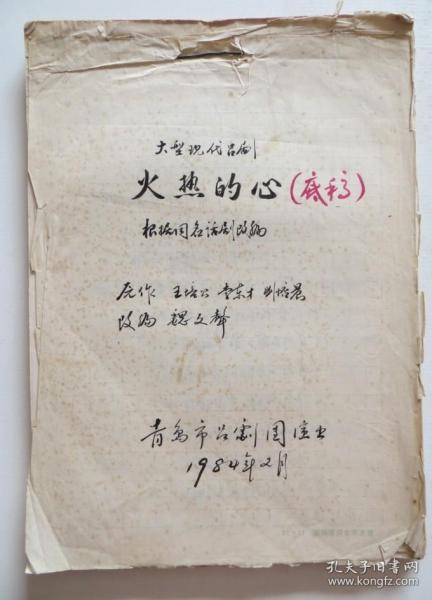 大型现代吕剧
火热的心(底稿)
根据同名话剧改编
原作 王培公 李东才 刘培晨
改编 魏文声
青岛市吕剧团演出
1984年2月
孔夫子旧书网
www.kongfz.com